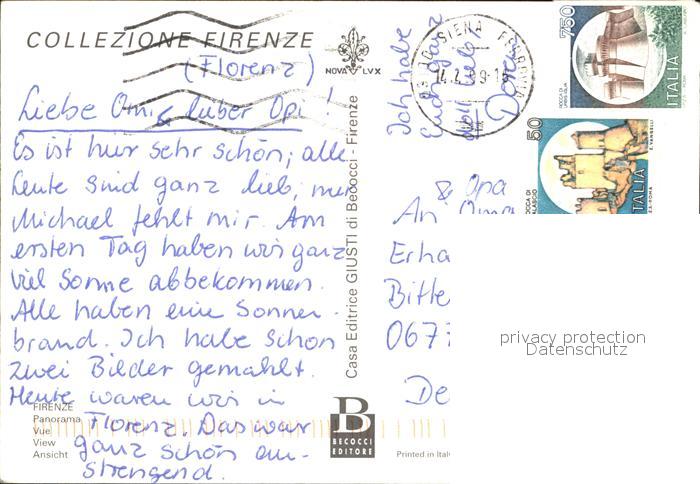 COLLEZIONE FIRENZE
(Florenz)
NOVA LVX
Liebe Omi & lieber Opi!
Es ist hier sehr schön; alle
Leute sind ganz lieb, nur
Michael fehlt mir. Am
ersten Tag haben wir ganz
viel Sonne abbekommen.
Alle haben eine Sonnen-
brand. Ich habe schon
zwei Bilder gemahlt.
Heute waren wir in
Florenz. Das war
ganz schön an-
strengend.
FIRENZE
Panorama
Vue
View
Ansicht
Casa Editrice GIUSTI di Becocci - Firenze
B
BECOCCI
EDITORE
Printed in Ital
Ich habe
Euch ganz
doll lieb
SIENA FERROVIA
750
ITALIA
50
ITALIA
& Opa
An Oma
Erha
Bitte
067
De
privacy protection
Datenschutz